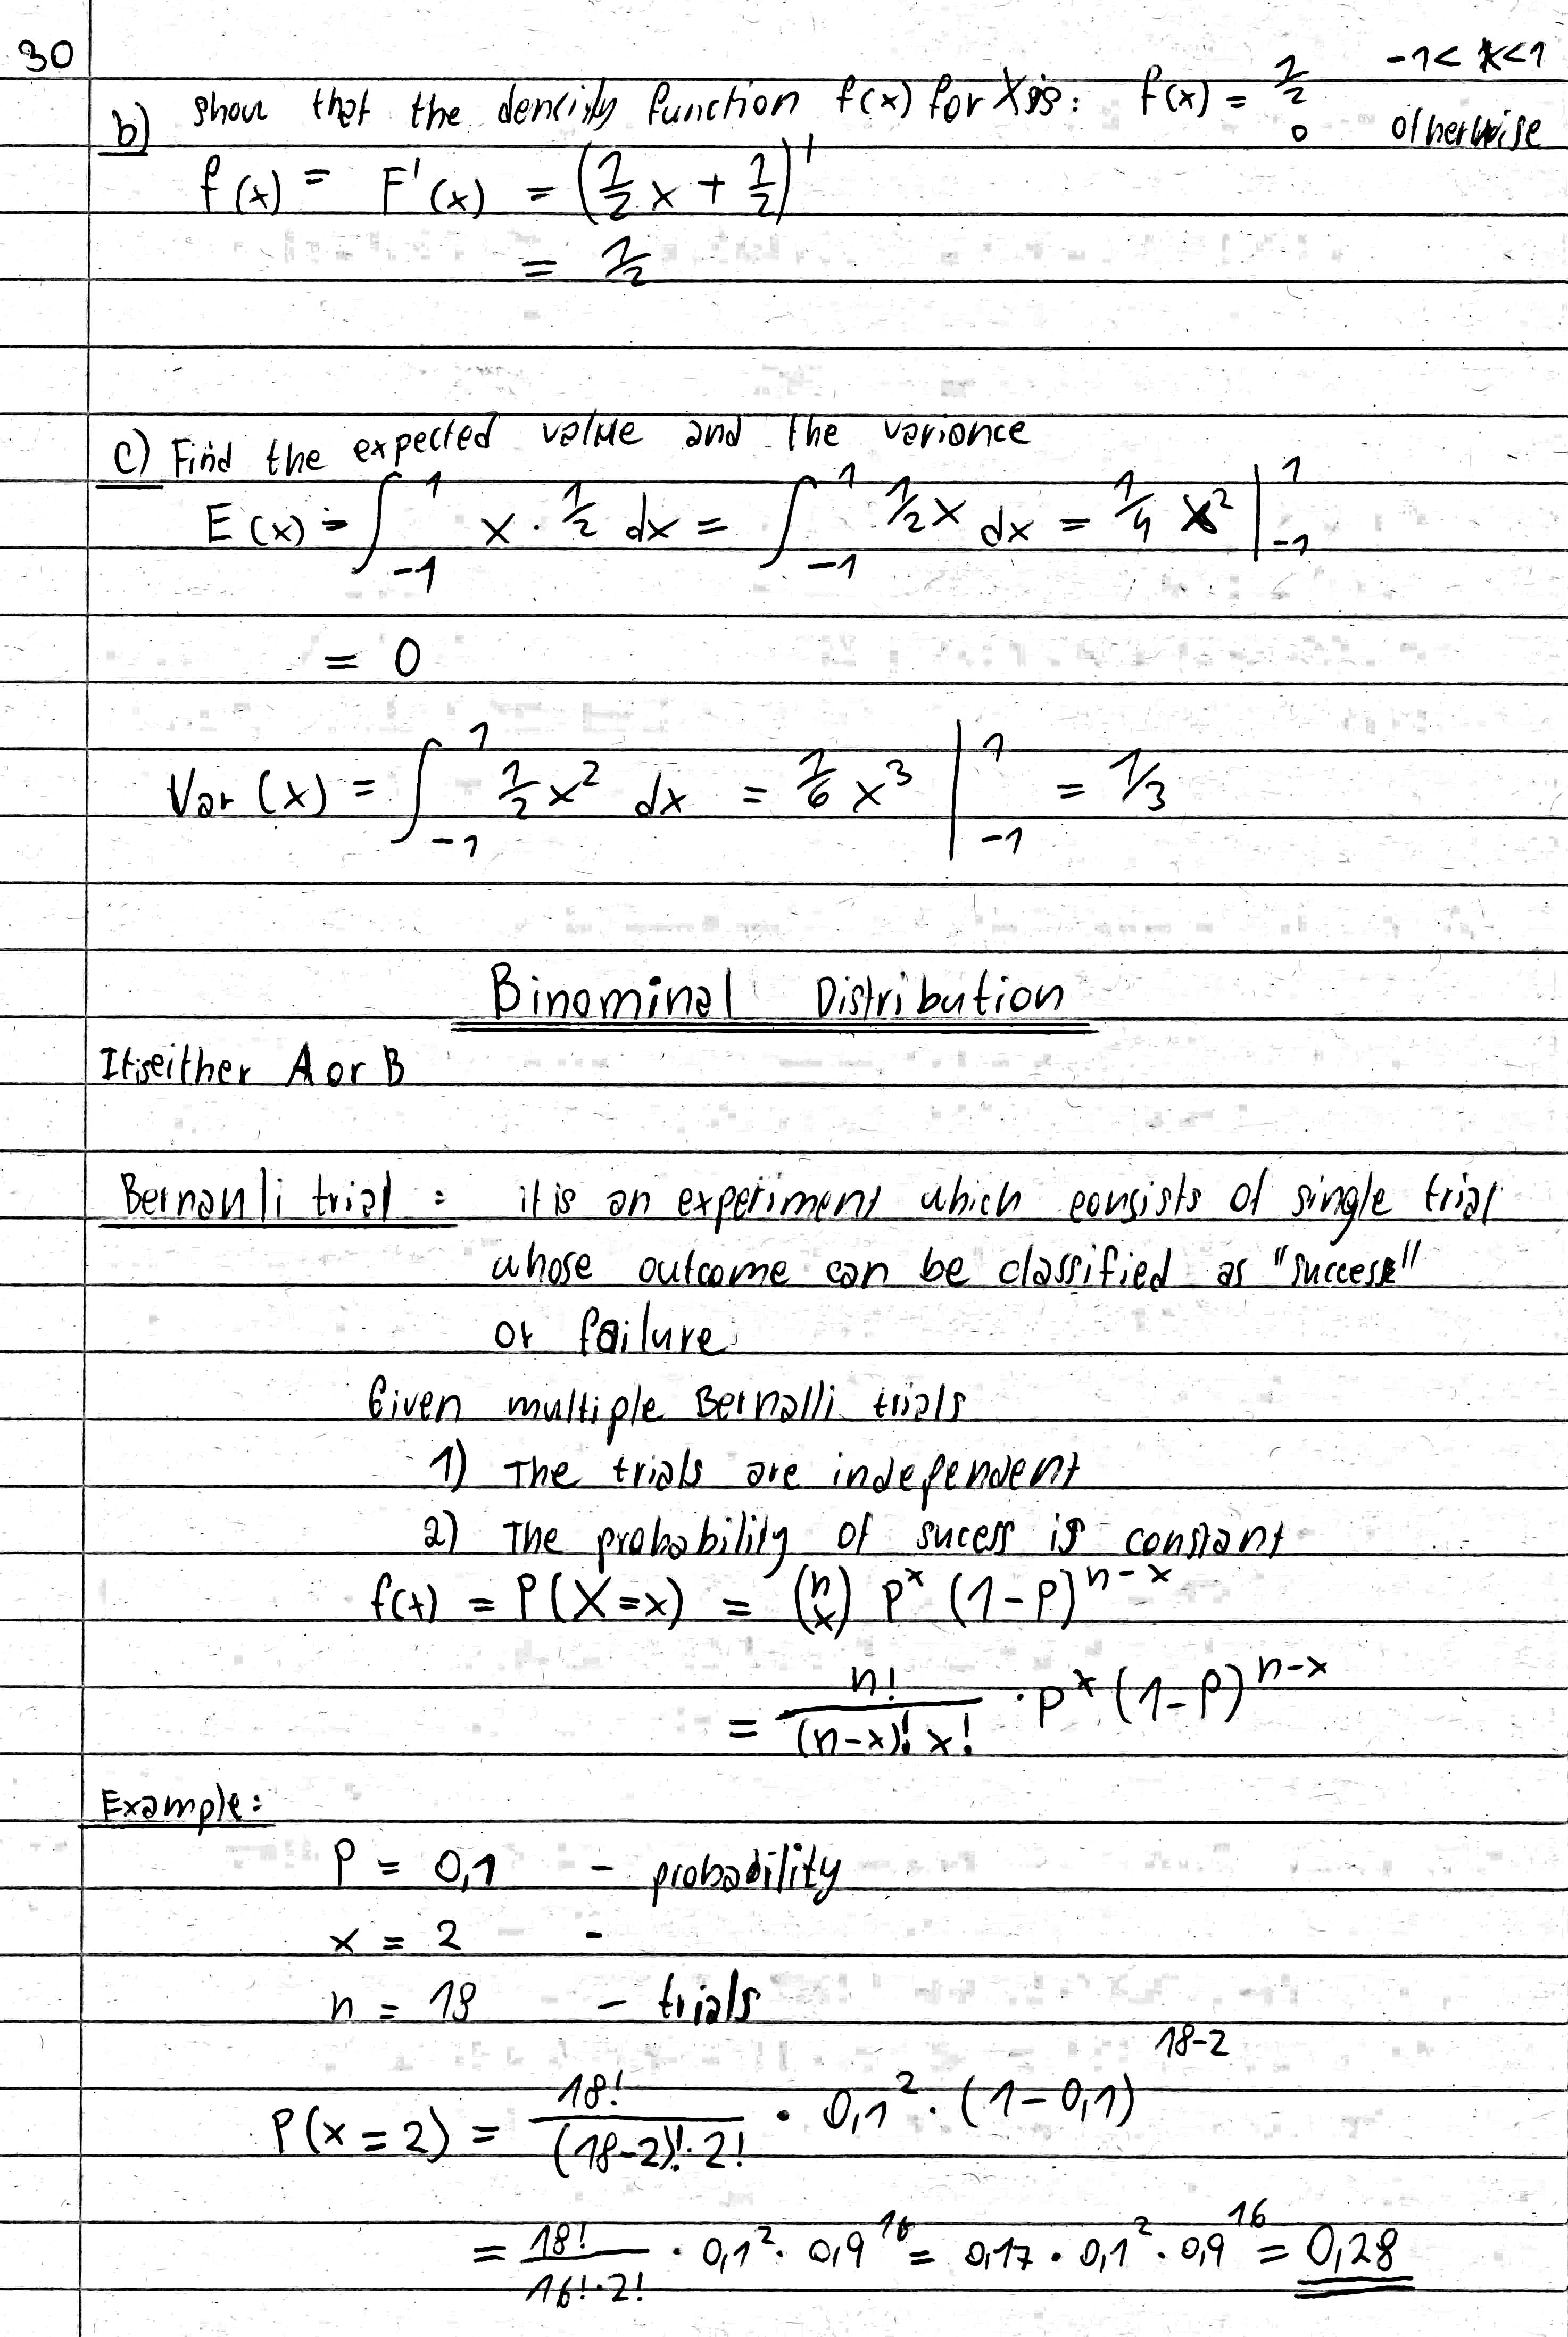 30
b) show that the density function f(x) for X is: f(x) = 1/2 -1 < x < 1
0 otherwise
f(x) = F'(x) = (1/2 x + 1/2)'
= 1/2
c) Find the expected value and the varionce
E(x) = ∫_{-1}^{1} x · 1/2 dx = ∫_{-1}^{1} 1/2 x dx = 1/4 x² |_{-1}^{1}
= 0
Var(x) = ∫_{-1}^{1} 1/2 x² dx = 1/6 x³ |_{-1}^{1} = 1/3
Binominal Distribution
It is either A or B
Bernanli trial : it is an experiment which consists of single trial
whose outcome can be classified as "success"
or failure
Given multiple Bernalli trials
1) The trials are independent
2) The probability of sucess is constant
f(x) = P(X=x) = (n x) P^x (1-P)^{n-x}
= n! / (n-x)! x! · P^x (1-P)^{n-x}
Example:
P = 0,1 - probability
x = 2 -
n = 18 - trials
P(x=2) = 18! / (18-2)!·2! · 0,1² · (1-0,1)^{18-2}
= 18! / 16!·2! · 0,1² · 0,9^{16} = 0,17 · 0,1² · 0,9^{16} = 0,28